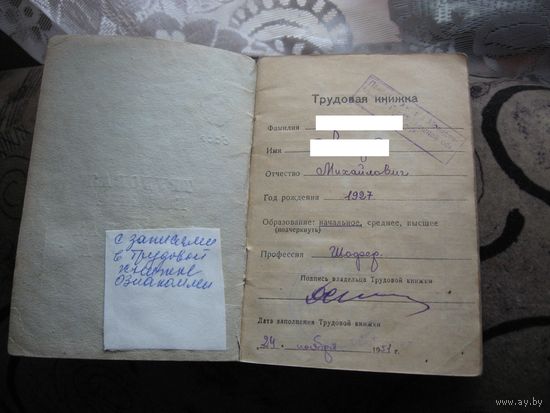 с записями
в трудовой
книжке
ознакомлен
Трудовая книжка
Фамилия
Имя
Отчество Михайлович
Год рождения 1927
Образование: начальное, среднее, высшее
(подчеркнуть)
Профессия Шофер.
Подпись владельца Трудовой книжки
Дата заполнения Трудовой книжки
24 ноября 1951 г.
www.ay.by